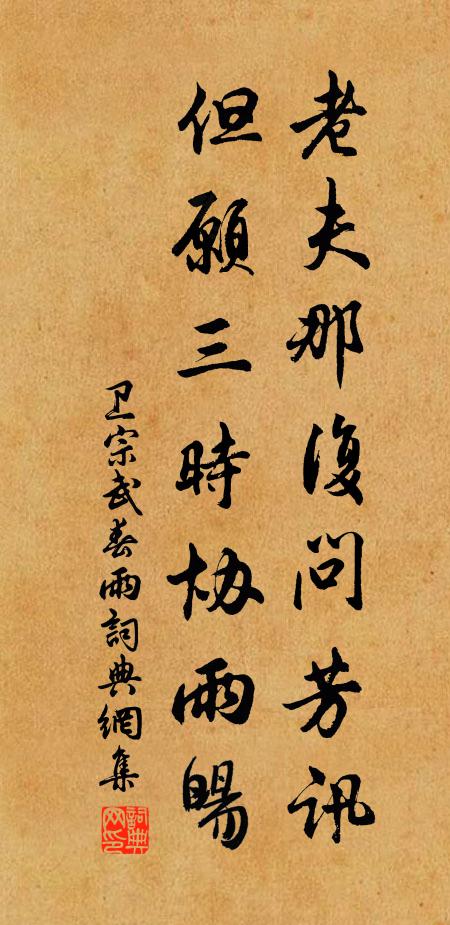 老夫那復問芳訊
但願三時協雨暘
卫宗武春雨詞典網集
詞典网印